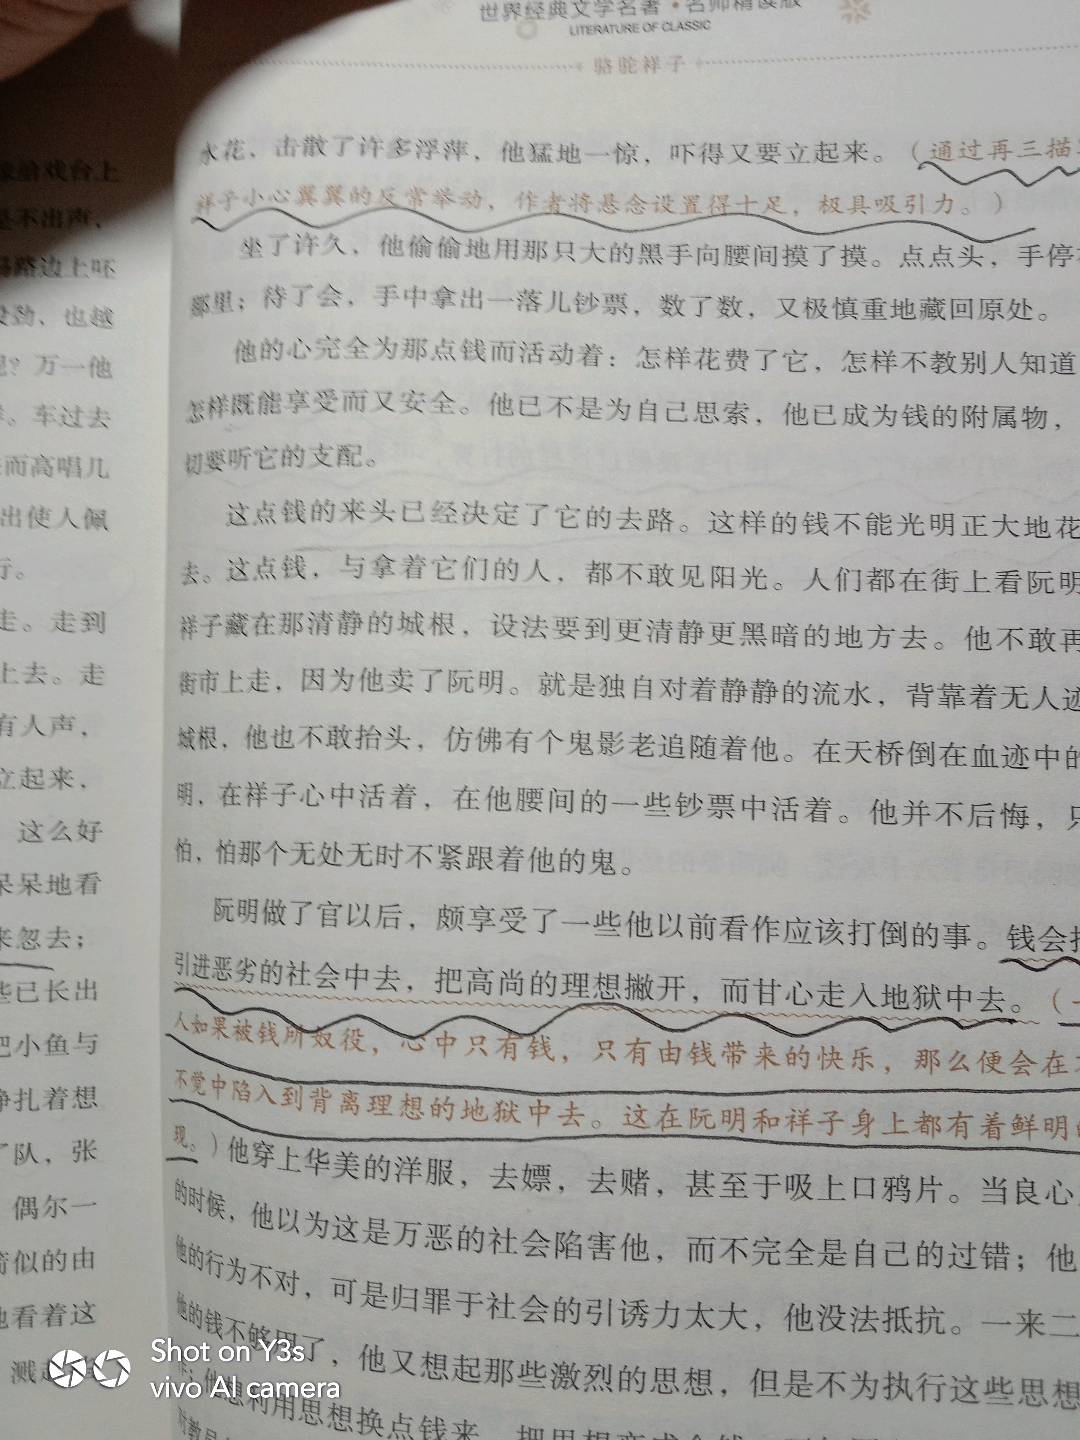 世界经典文学名著·名师精读版
LITERATURE OF CLASSIC
骆驼祥子
水花，击散了许多浮萍，他猛地一惊，吓得又要立起来。（通过再三描
祥子小心翼翼的反常举动，作者将悬念设置得十足，极具吸引力。）
坐了许久，他偷偷地用那只大的黑手向腰间摸了摸。点点头，手停
那里；待了会，手中拿出一落儿钞票，数了数，又极慎重地藏回原处。
他的心完全为那点钱而活动着：怎样花费了它，怎样不教别人知道
怎样既能享受而又安全。他已不是为自己思索，他已成为钱的附属物，
切要听它的支配。
这点钱的来头已经决定了它的去路。这样的钱不能光明正大地花
去。这点钱，与拿着它们的人，都不敢见阳光。人们都在街上看阮明
祥子藏在那清静的城根，设法要到更清静更黑暗的地方去。他不敢再
街市上走，因为他卖了阮明。就是独自对着静静的流水，背靠着无人迹
城根，他也不敢抬头，仿佛有个鬼影老追随着他。在天桥倒在血迹中的
明，在祥子心中活着，在他腰间的一些钞票中活着。他并不后悔，只
怕，怕那个无处无时不紧跟着他的鬼。
阮明做了官以后，颇享受了一些他以前看作应该打倒的事。钱会把
引进恶劣的社会中去，把高尚的理想撇开，而甘心走入地狱中去。（一
人如果被钱所奴役，心中只有钱，只有由钱带来的快乐，那么便会在
不觉中陷入到背离理想的地狱中去。这在阮明和祥子身上都有着鲜明
现。）他穿上华美的洋服，去嫖，去赌，甚至于吸上口鸦片。当良心
的时候，他以为这是万恶的社会陷害他，而不完全是自己的过错；他
他的行为不对，可是归罪于社会的引诱力太大，他没法抵抗。一来二
他的钱不够用了，他又想起那些激烈的思想，但是不为执行这些思想
他想利用思想换点钱来
台上
是不出声，
马路边上吓
没劲、也越
？万一他
。车过去
而高唱几
出使人佩
行。
走。走到
上去。走
有人声，
立起来，
这么好
呆呆地看
来忽去；
些已长出
把小鱼与
挣扎着想
了队，张
偶尔一
箭似的由
地看着这
溅起
Shot on Y3s
vivo AI camera